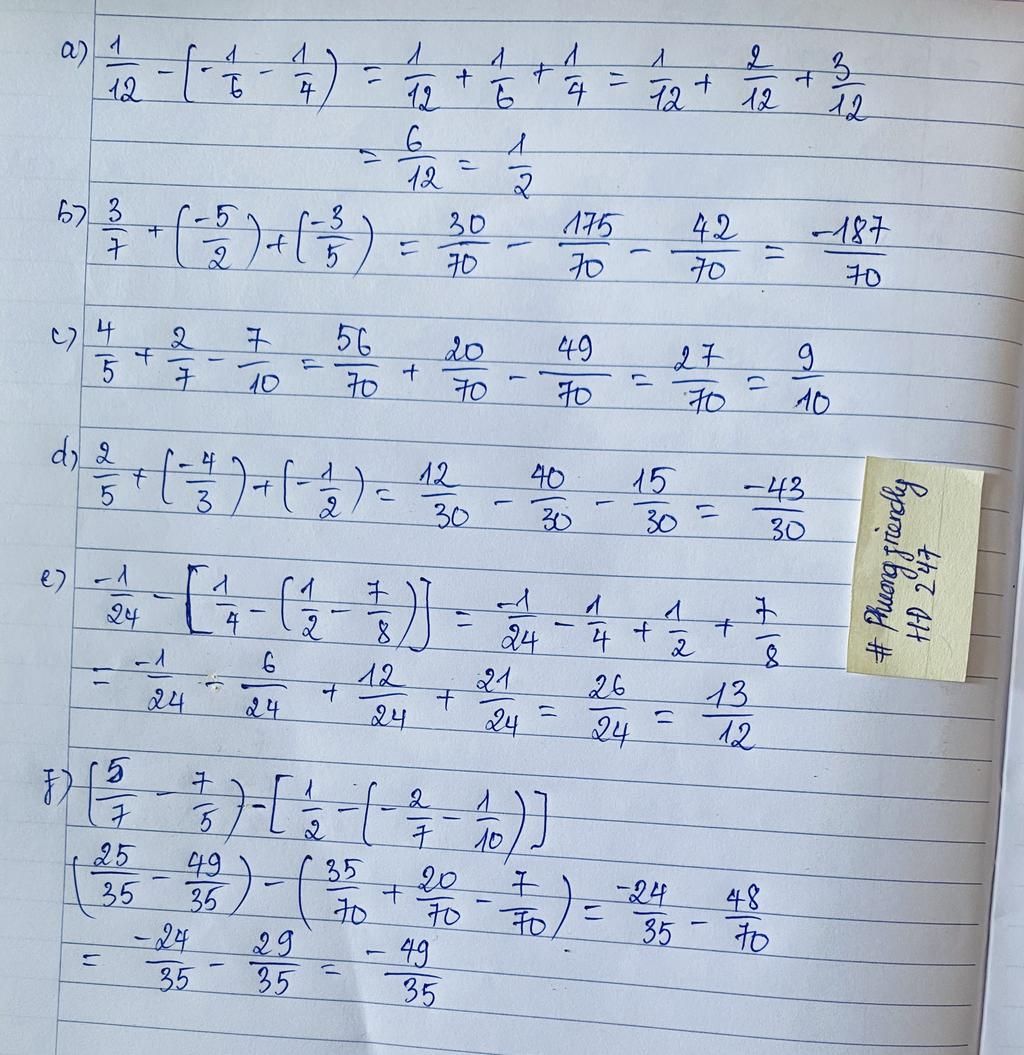 a) 1/12 - (-1/6 - 1/4) = 1/12 + 1/6 + 1/4 = 1/12 + 2/12 + 3/12
= 6/12 = 1/2
b) 3/7 + (-5/2) + (-3/5) = 30/70 - 175/70 - 42/70 = -187/70
c) 4/5 + 2/7 - 7/10 = 56/70 + 20/70 - 49/70 = 27/70 = 9/10
d) 2/5 + (-4/3) + (-1/2) = 12/30 - 40/30 - 15/30 = -43/30
e) -1/24 - [1/4 - (1/2 - 7/8)] = -1/24 - 1/4 + 1/2 + 7/8
= -1/24 - 6/24 + 12/24 + 21/24 = 26/24 = 13/12
f) (5/7 - 7/5) - [1/2 - (-2/7 - 1/10)]
(25/35 - 49/35) - (35/70 + 20/70 - 7/70) = -24/35 - 48/70
= -24/35 - 29/35 = -49/35
# Phuong friendly
HD 247